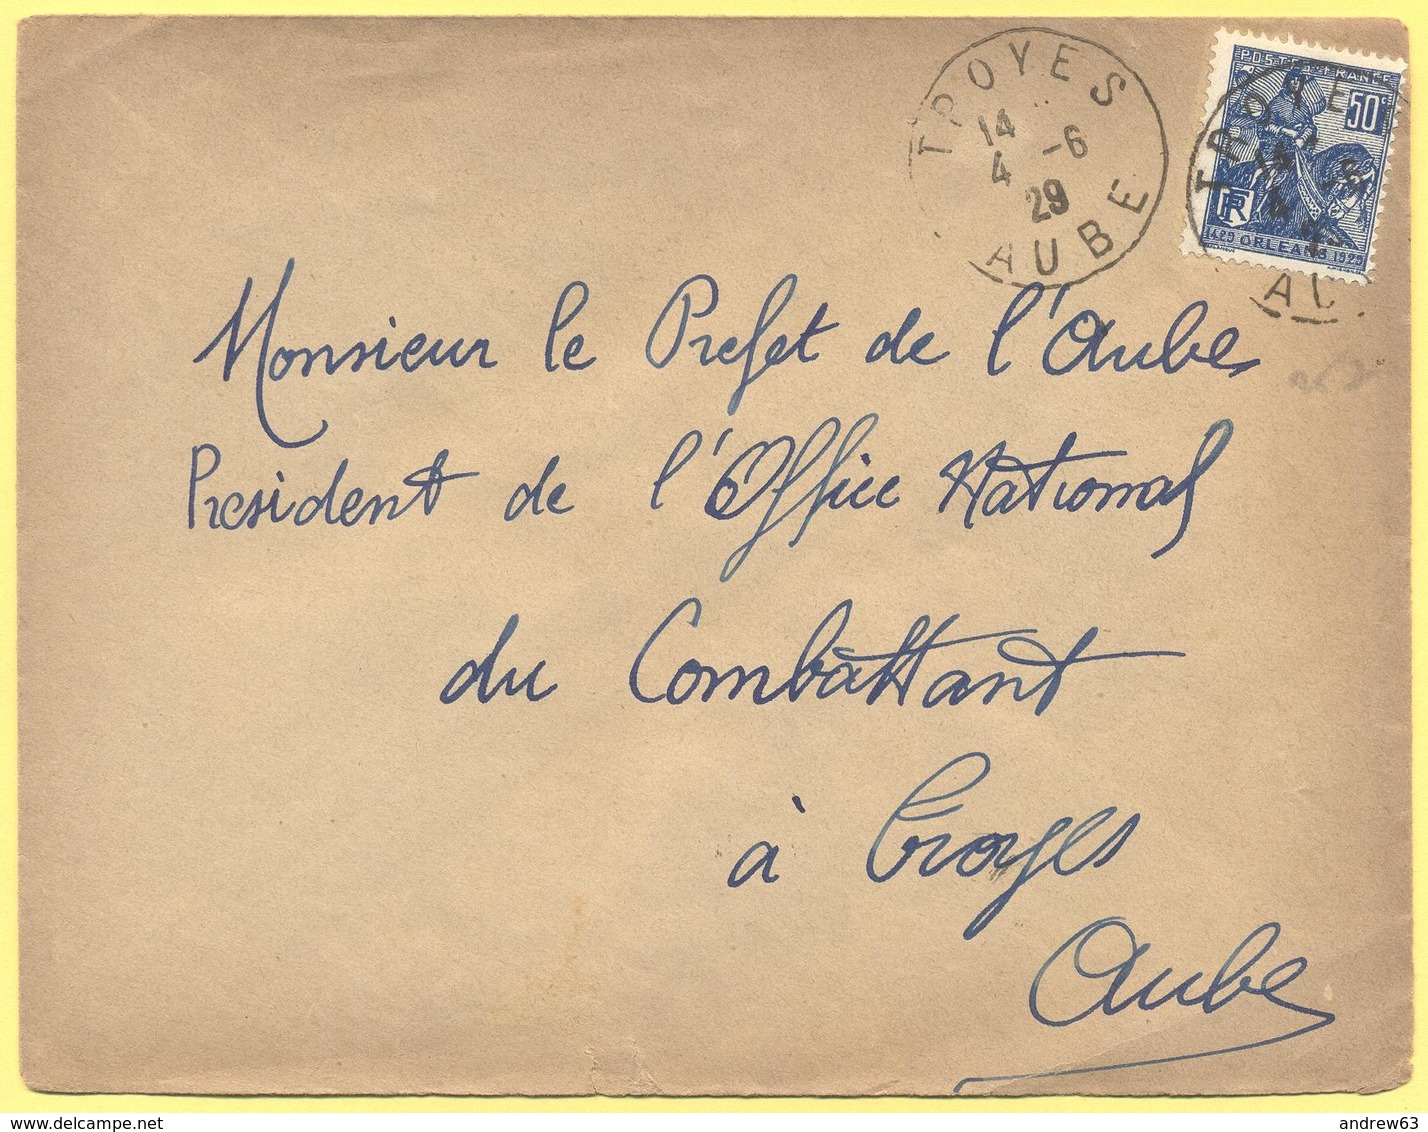 TROYES
14
4 -6
29
AUBE
POSTES FRANCE
50c
RF
1429 ORLEANS 1929
TROYE
14
4 -6
AU
Monsieur le Prefet de l'Aube
President de l'Office National
du Combattant
à Troyes
Aube
www.delcampe.net
andrew63